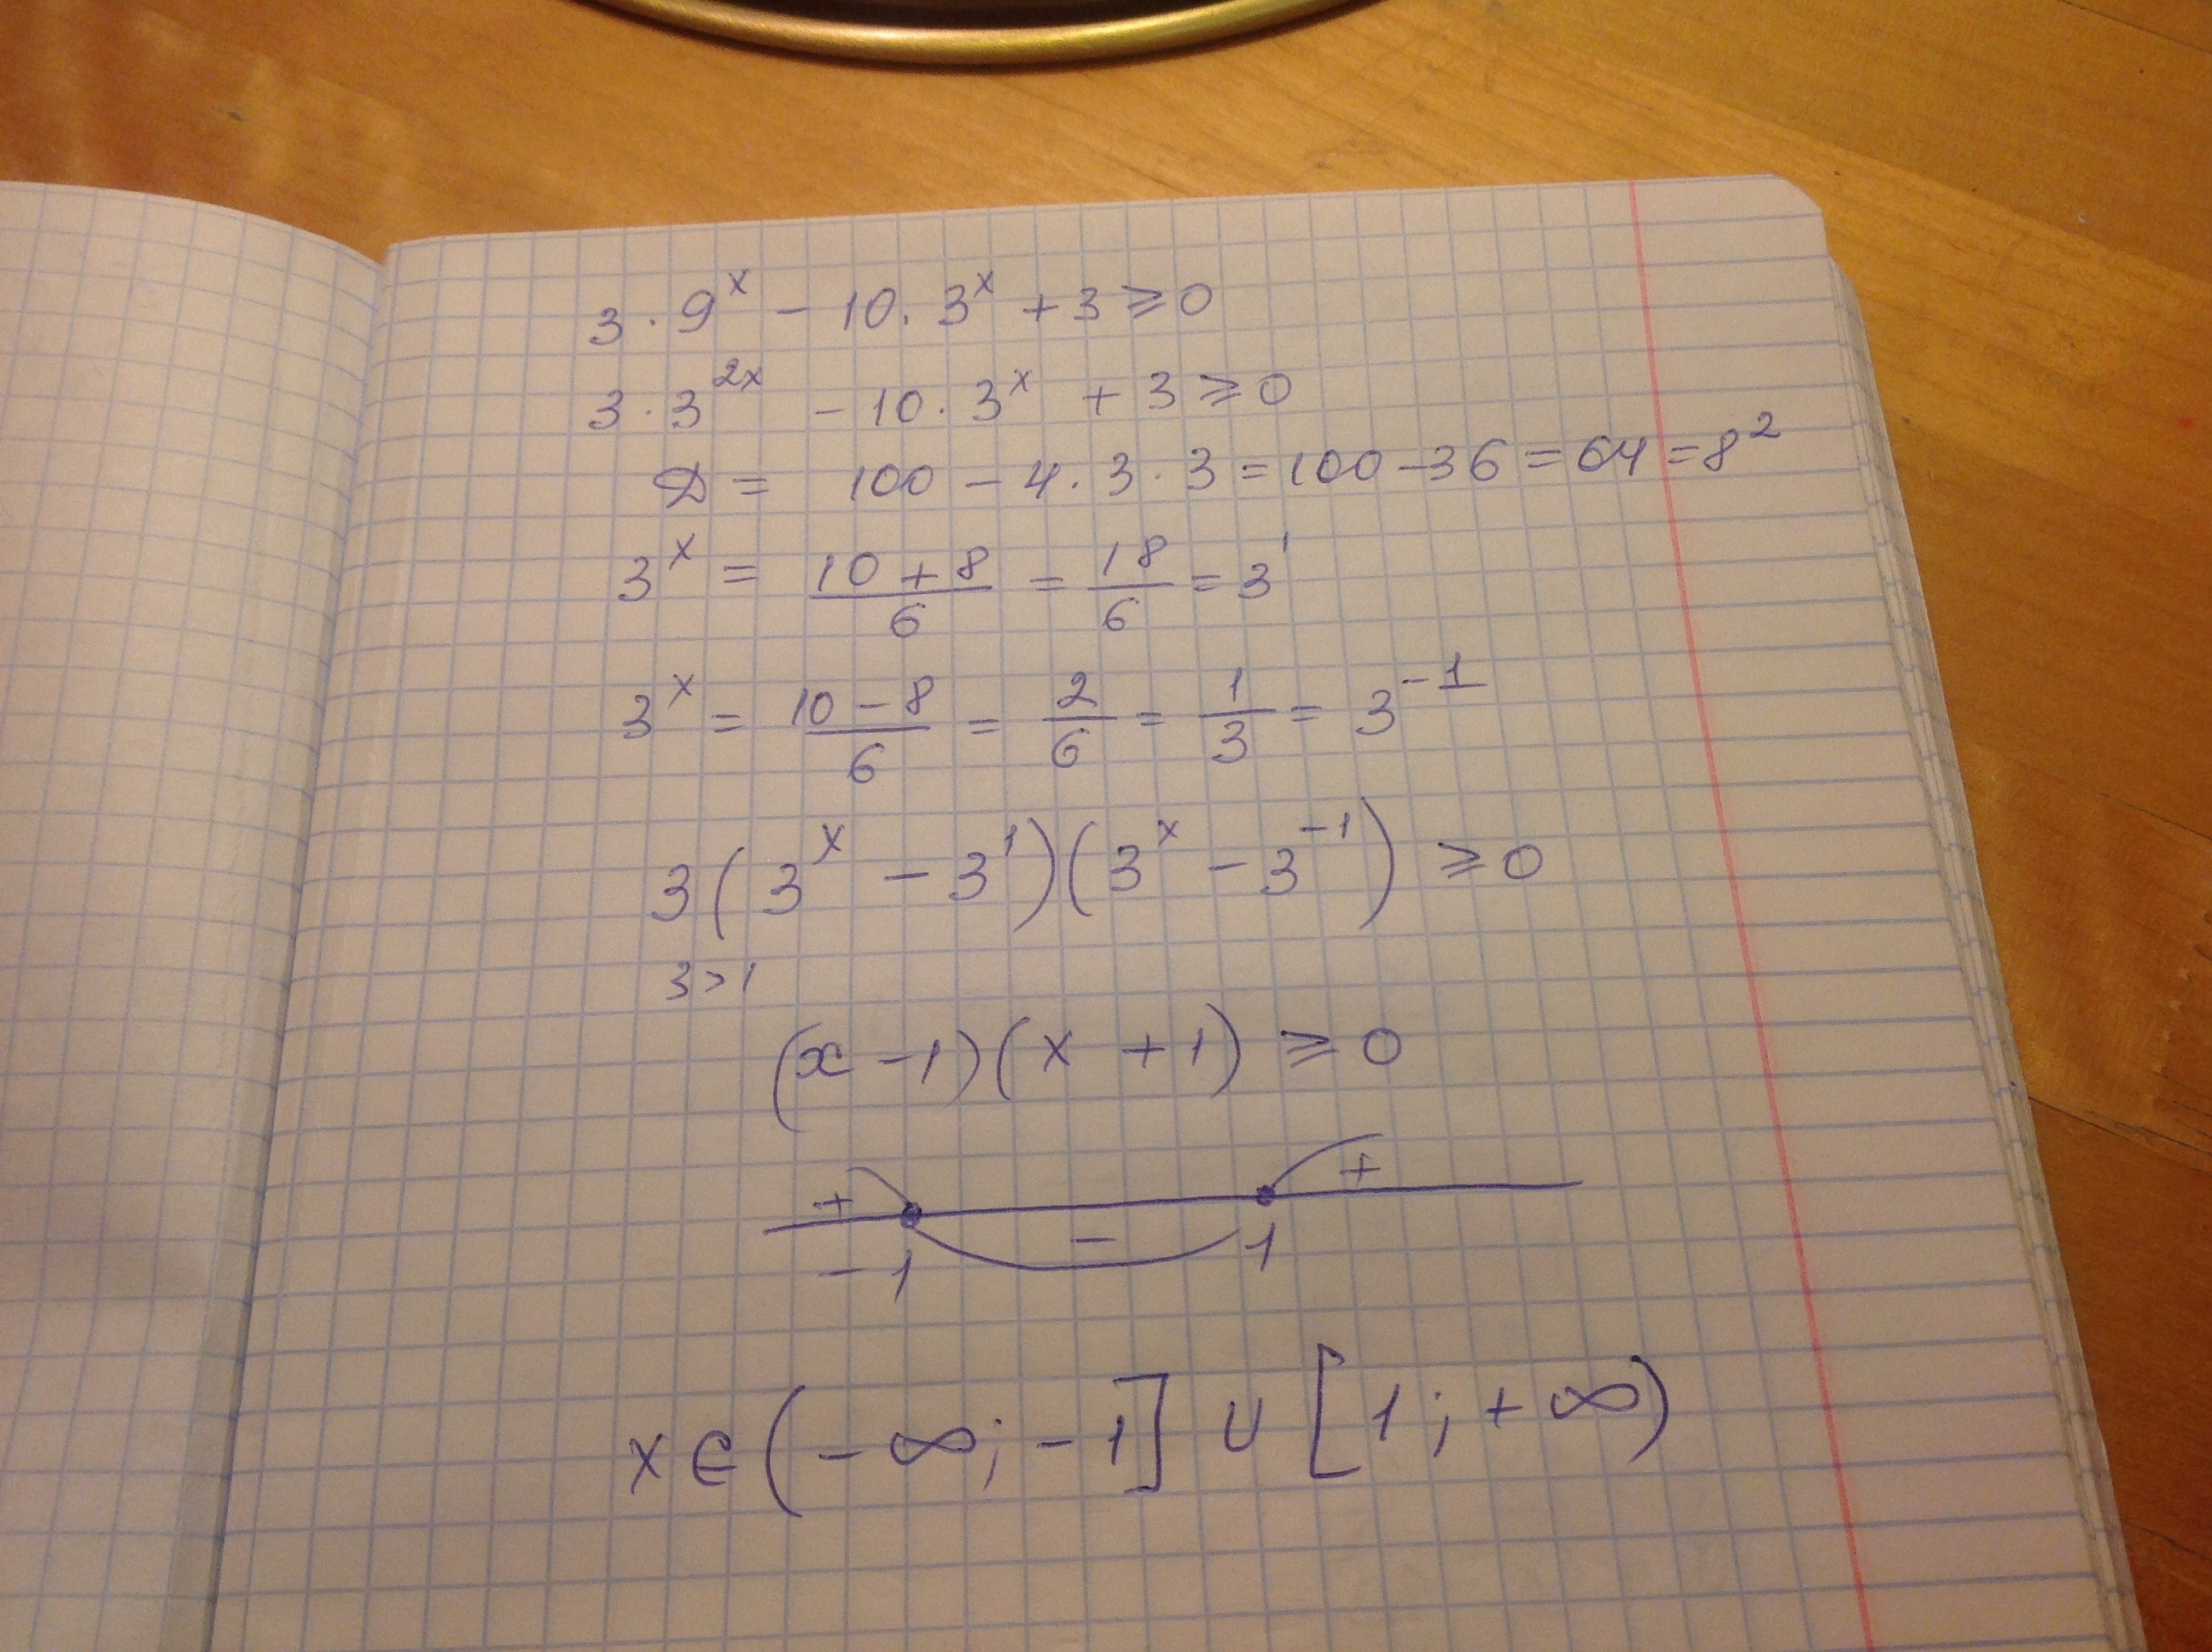 3 · 9^x − 10 · 3^x + 3 ⩾ 0
3 · 3^2x − 10 · 3^x + 3 ⩾ 0
D = 100 − 4 · 3 · 3 = 100 − 36 = 64 = 8^2
3^x = (10 + 8)/6 = 18/6 = 3^1
3^x = (10 − 8)/6 = 2/6 = 1/3 = 3^−1
3(3^x − 3^1)(3^x − 3^−1) ⩾ 0
3 > 1
(x − 1)(x + 1) ⩾ 0
+ − +
−1 1
x ∈ (−∞; −1] ∪ [1; +∞)